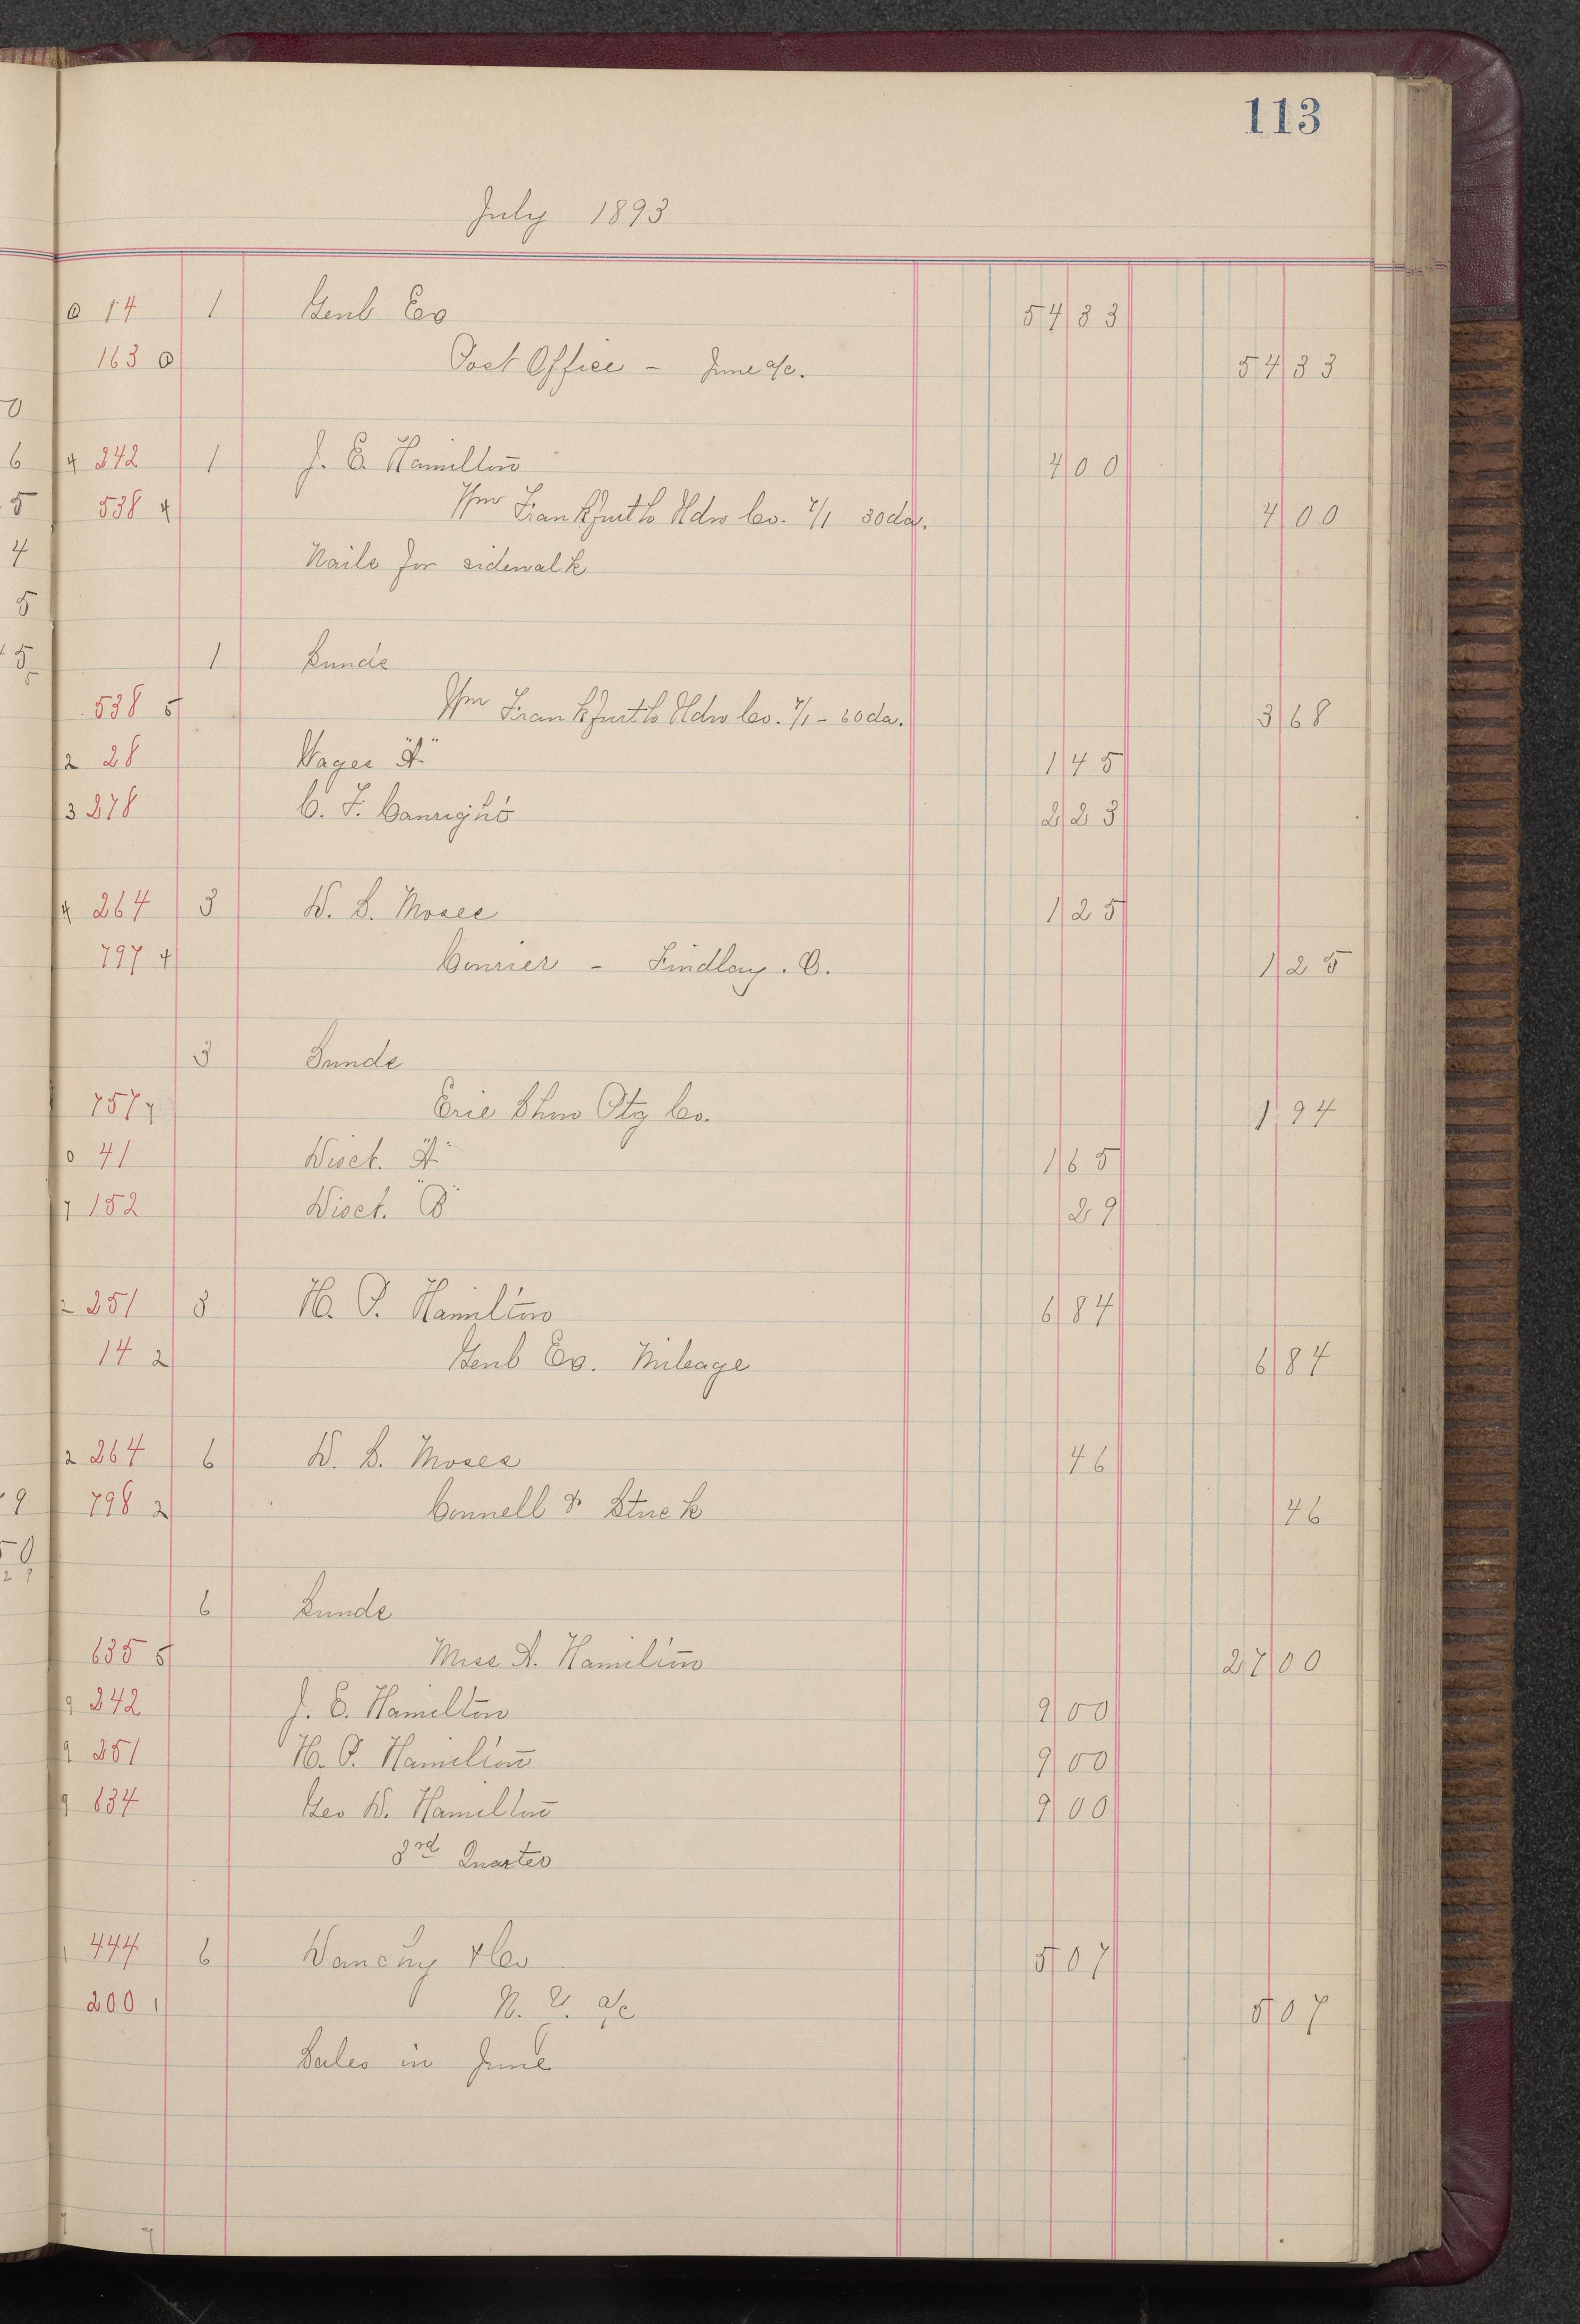 113
July 1893
0 14 1 Genl Ex 54 33
163 0 Post Office - June a/c. 54 33
0
6 4 242 1 J. E. Hamilton 4 00
5 538 4 Wm Frankfurth Hdw Co. 7/1 30da. 4 00
4 Nails for sidewalk
5
5 1 Sunds
538 5 Wm Frankfurth Hdw Co. 7/1 - 60da. 3 68
2 28 Wages "A" 1 45
3 278 C. F. Canright 2 23
4 264 3 W. S. Moses 1 25
797 4 Courier - Findlay. O. 1 25
3 Sunds
757 7 Erie Show Ptg Co. 1 94
0 41 Disct. "A" 1 65
7 152 Disct. "B" 29
2 251 3 H. P. Hamilton 6 84
14 2 Genl Ex. Mileage 6 84
2 264 6 W. S. Moses 46
9 798 2 Connell & Stuck 46
50
6 Sunds
635 5 Miss A. Hamilton 27 00
9 242 J. E. Hamilton 9 00
9 251 H. P. Hamilton 9 00
9 634 Geo W. Hamilton 9 00
3rd Quarter
1 444 6 & Co 5 07
200 1 N. Y. a/c 5 07
Sales in June